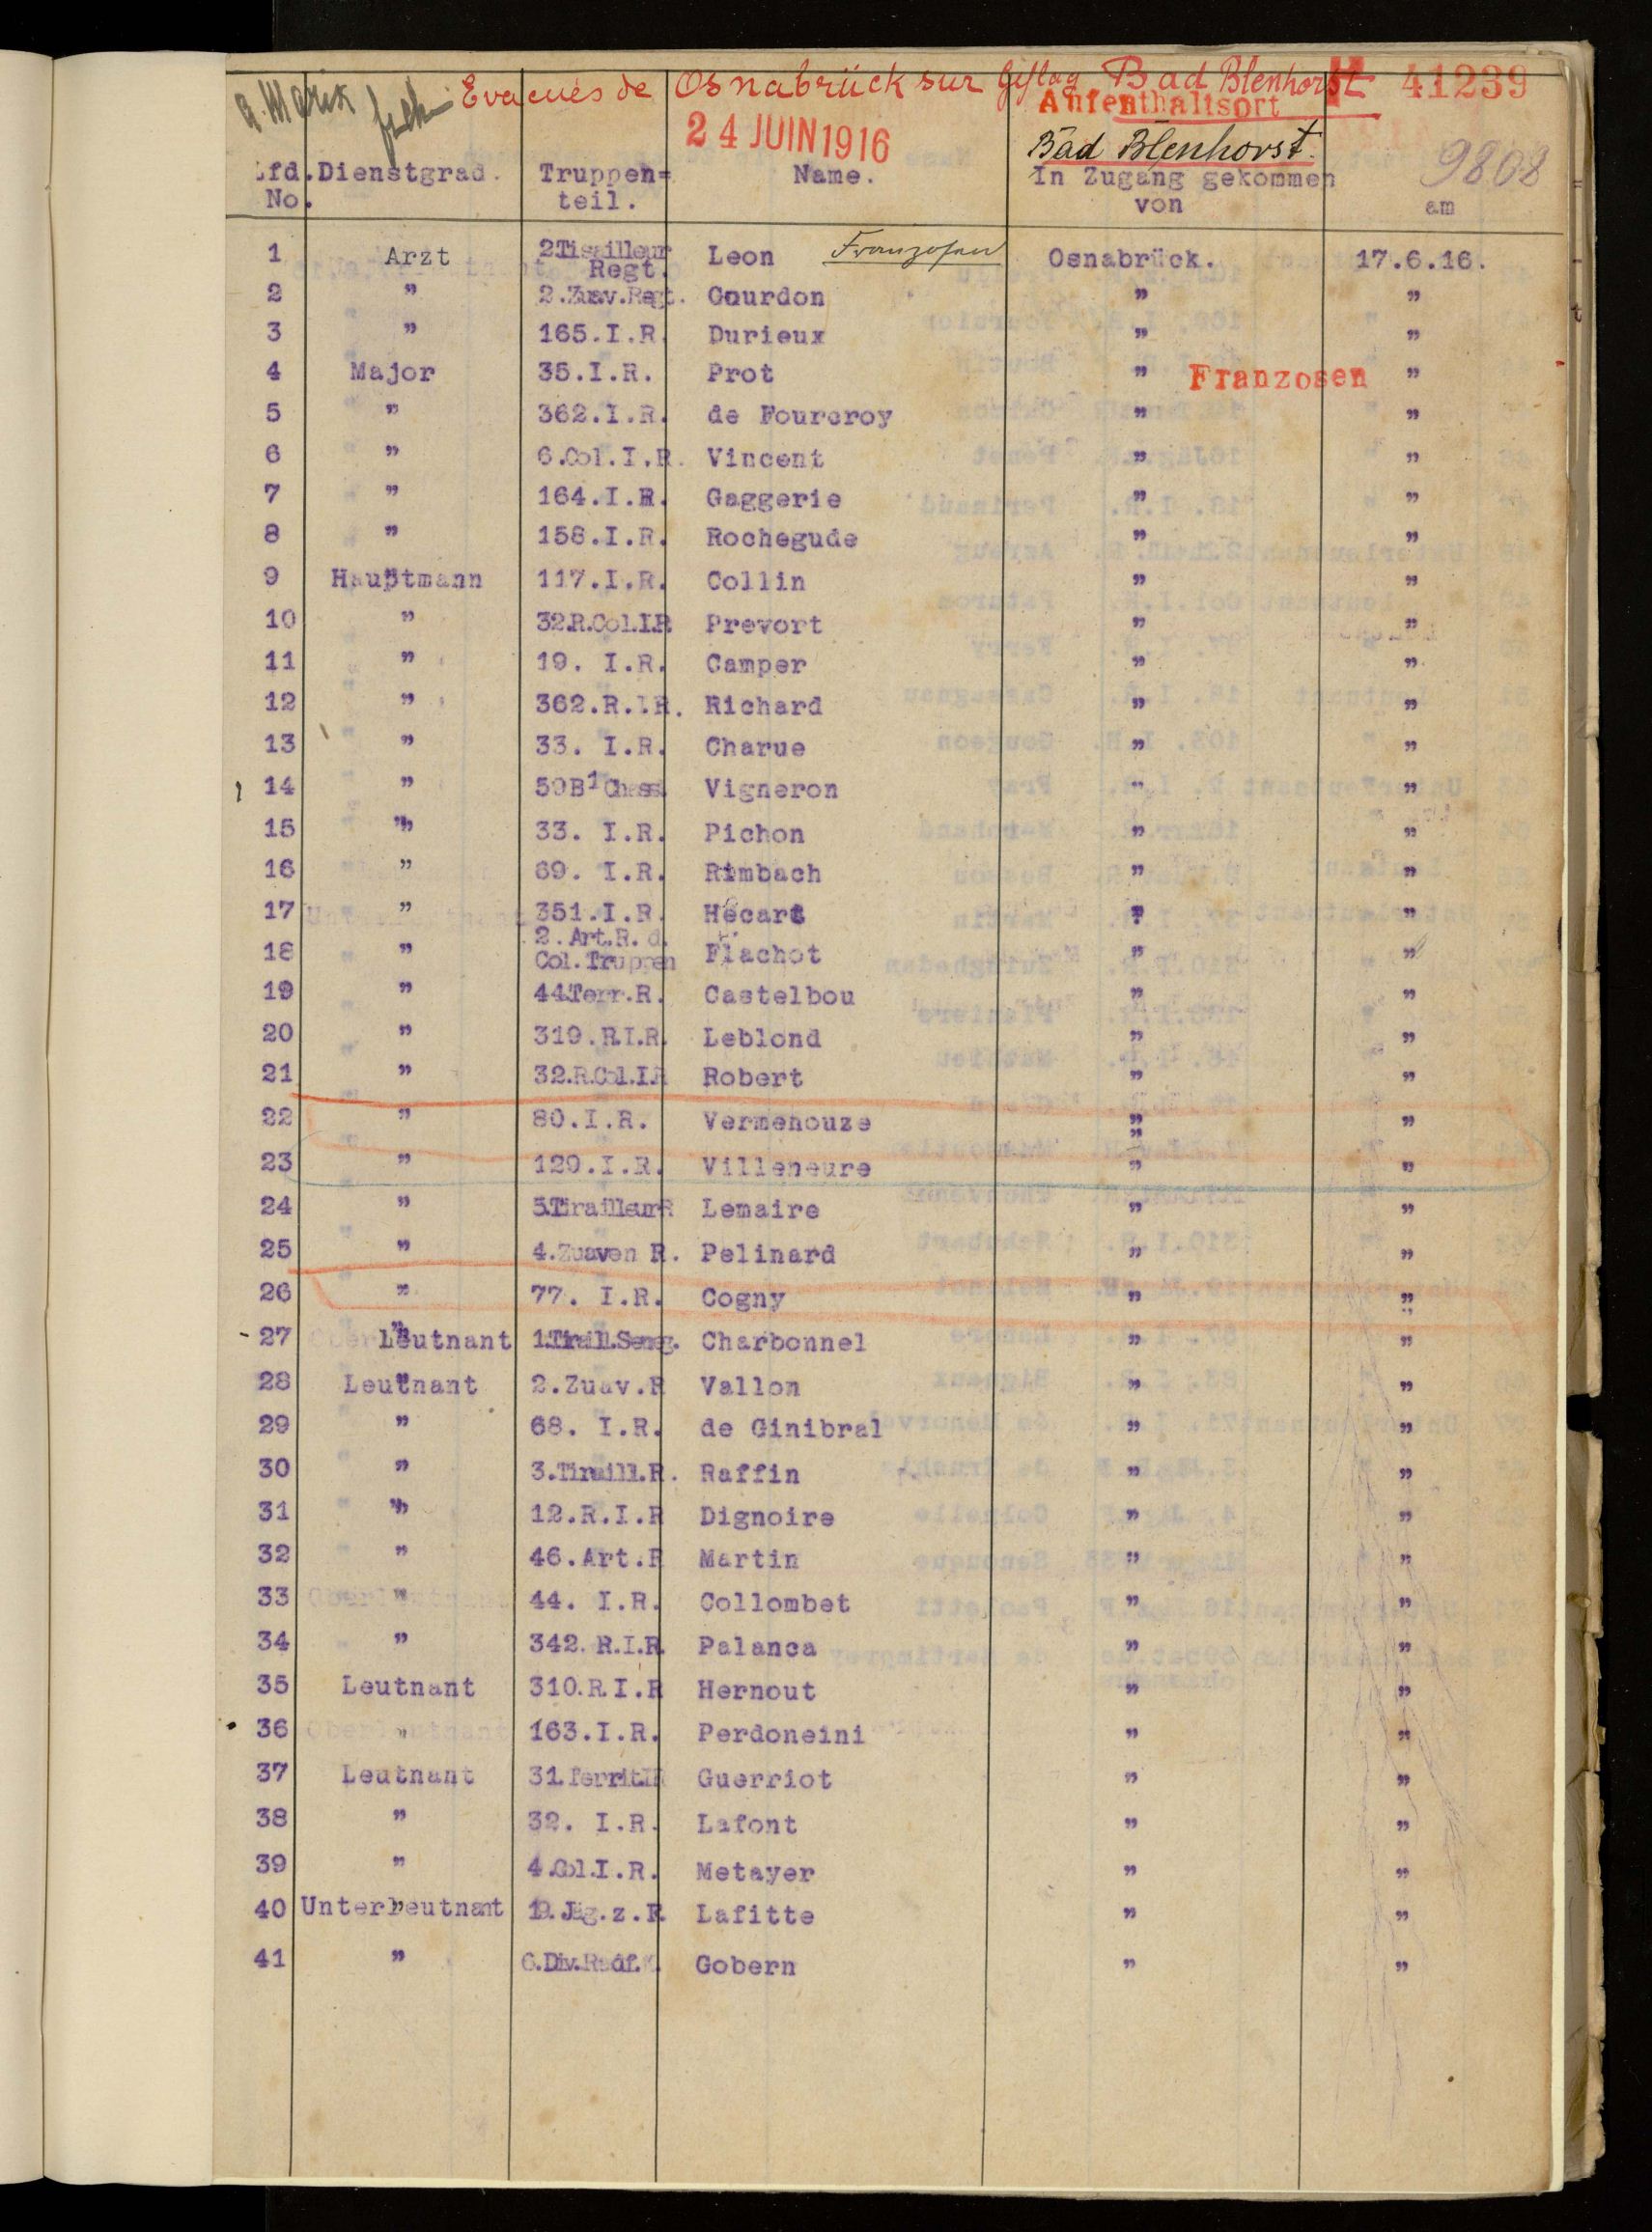 Evacués de Osnabrück sur Gflag Bad Blenhorst 41239
Aufenthaltsort
24 JUIN 1916
Bad Blenhorst.
9808
Lfd. Dienstgrad. Truppen= Name. In Zugang gekommen
No. teil. von am
1 Arzt 2 Tisailleur Regt. Leon Franzosen Osnabrück. 17.6.16.
2 " 2.Zuav.Regt. Gourdon " "
3 " 165.I.R. Durieux " "
4 Major 35.I.R. Prot " Franzosen "
5 " 362.I.R. de Fourcroy " "
6 " 6.Col.I.R. Vincent " "
7 " 164.I.R. Gaggerie " "
8 " 158.I.R. Rochegude " "
9 Hauptmann 117.I.R. Collin " "
10 " 32.R.Col.I.R. Prevort " "
11 " 19. I.R. Camper " "
12 " 362.R.I.R. Richard " "
13 " 33. I.R. Charue " "
14 " 59 B1 Chass. Vigneron " "
15 " 33. I.R. Pichon " "
16 " 69. I.R. Rimbach " "
17 " 351.I.R. Hecart " "
18 " 2. Art.R. d. Col. Truppen Flachot " "
19 " 44.Terr.R. Castelbou " "
20 " 319.R.I.R. Leblond " "
21 " 32.R.Col.I.R Robert " "
22 " 80.I.R. Vermenouze " "
23 " 129.I.R. Villeneure " "
24 " 5.TirailleurR Lemaire " "
25 " 4.Zuaven R. Pelinard " "
26 " 77. I.R. Cogny " "
27 Oberleutnant 1.Tiraill.Seneg. Charbonnel " "
28 Leutnant 2.Zuav.R Vallon " "
29 " 68. I.R. de Ginibral " "
30 " 3.Tiraill.R. Raffin " "
31 " 12.R.I.R Dignoire " "
32 " 46.Art.R Martin " "
33 " 44. I.R. Collombet " "
34 " 342.R.I.R Palanca " "
35 Leutnant 310.R.I.R Hernout " "
36 " 163.I.R. Perdoneini " "
37 Leutnant 31.Territ.IR Guerriot " "
38 " 32. I.R. Lafont " "
39 " 4.Col.I.R. Metayer " "
40 Unterleutnant 19.Jäg.z.R. Lafitte " "
41 " 6.Div.Radf. Gobern " "